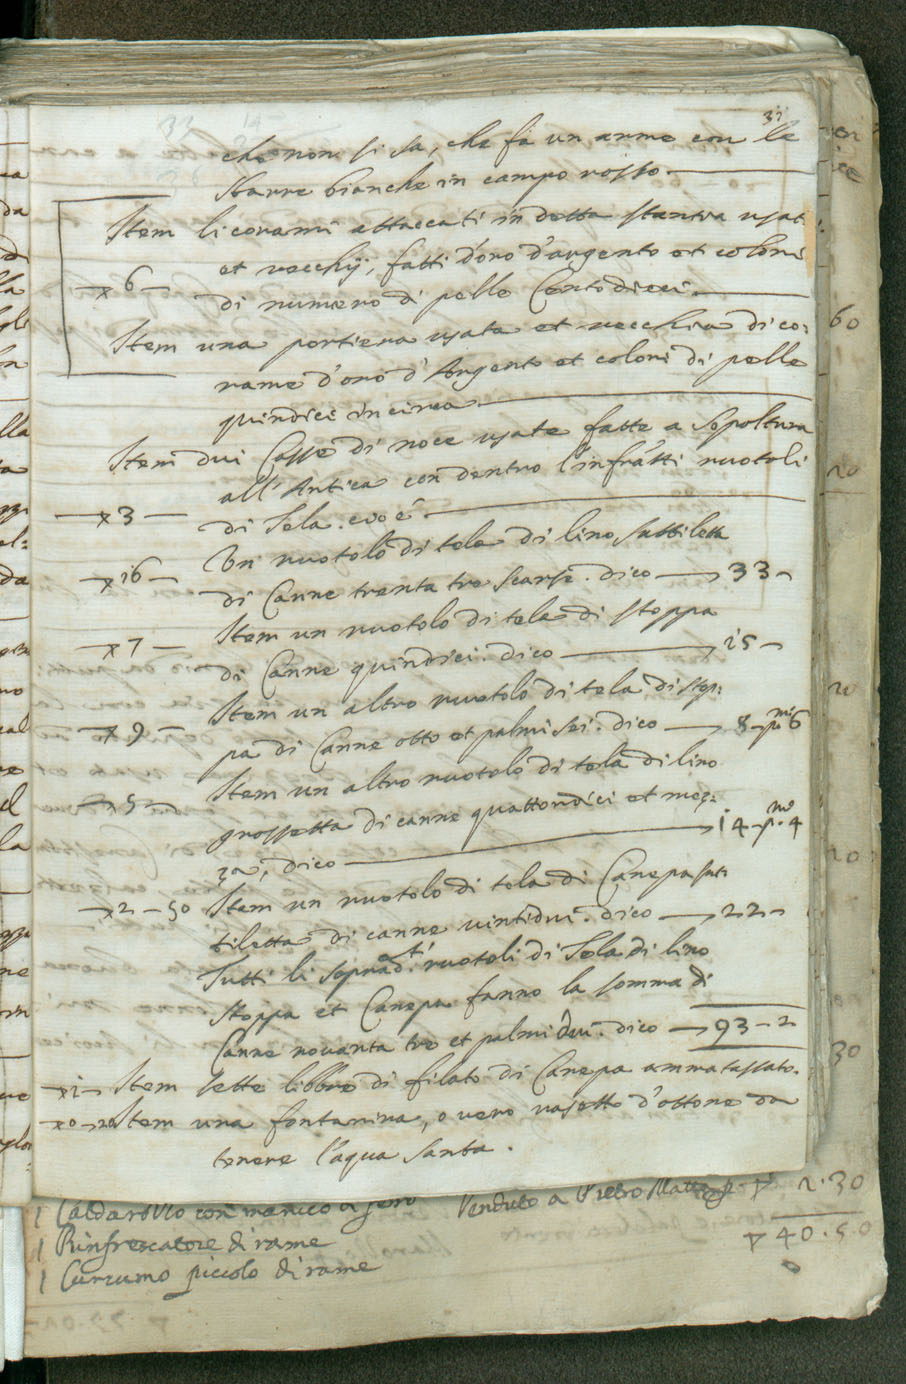 33
che non si sa, che fà un arme con le
sbarre bianche in campo rosso.
Item li corami attaccati in detta stantia usati
et vecchij, fatti d'oro d'argento et colori
6 di numero di pelle Centodieci.
Item una portiera usata et vecchia di co:
rame d'oro d'Argento et colori di pelle
quindici incirca
Item dui Casse di noce usate fatte a sepoltura
all'Antica con dentro l'infratti ruotoli
3 di Tela. cioè
Un ruotolo di tela di lino suttiletta
16 di Canne trenta tre scarse. dico 33
Item un ruotolo di tela di stoppa
7 di Canne quindici. dico 15
Item un altro ruotolo di tela di stop:
9 pa di Canne otto et palmi sei. dico 8 p.mi 6
Item un altro ruotolo di tela di lino
5 grossetta di canne quattordici et mez:
za, dico 14 p.mi 4
2-50 Item un ruotolo di tela di Canepa sut:
tiletta di canne vintidui. dico 22
Tutti li soprad.ti ruotoli di Tela di lino
stoppa et Canepa fanno la somma di
Canne novanta tre et palmi dui. dico 93-2
1 Item sette libbre di filato di Canepa ammatassato.
0-20 Item una fontanina, o vero vasetto d'ottone da
tenere l'aqua santa.
1 Caldarozzo con manico di ferro Venduto a Pietro 2.30
1 Rinfrescatore di rame 40.50
1 Curcumo piccolo di rame
60
20
20
20
30